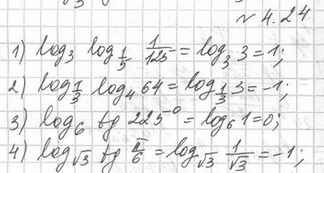 № 4.24
1) log₃ log_{1/5} 1/125 = log₃ 3 = 1;
2) log_{1/3} log₄ 64 = log_{1/3} 3 = -1;
3) log₆ tg 225° = log₆ 1 = 0;
4) log_{√3} tg π/6 = log_{√3} 1/√3 = -1;